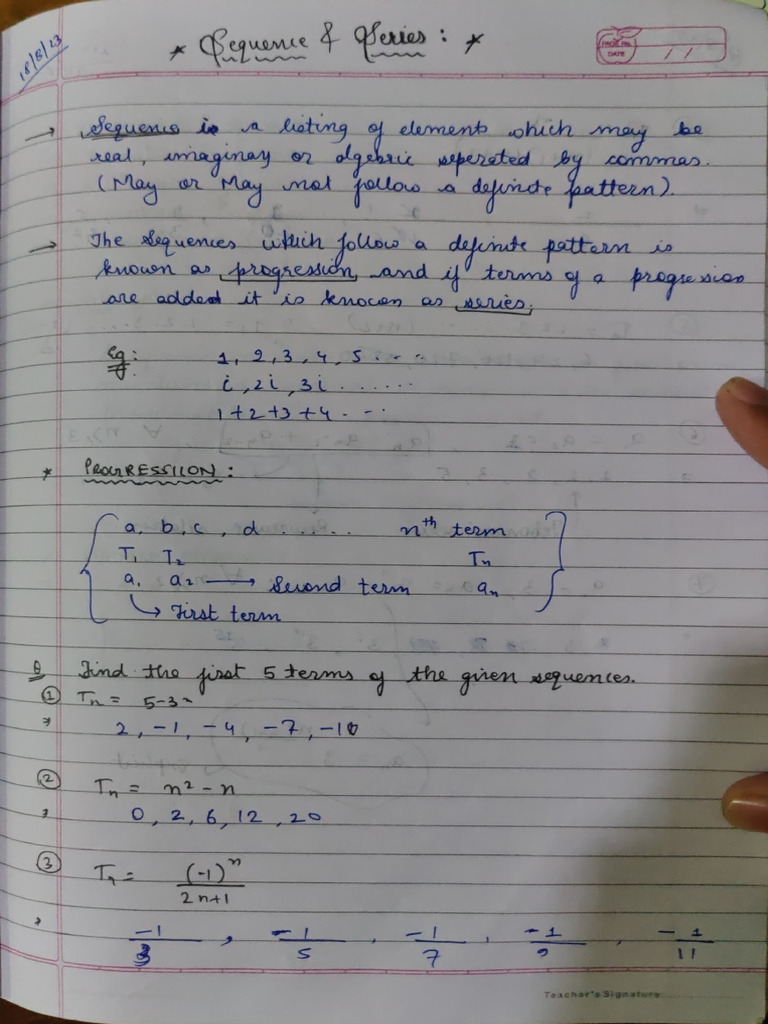 18/8/23
* Sequence & Series : *
PAGE No.
DATE / /
→ Sequence is a listing of elements which may be
real, imaginay or algebric seperated by commas.
(May or May not follow a definite pattern).
→ The Sequences which follow a definite pattern is
known as progression, and if terms of a progression
are added it is known as series.
Eg: 1, 2, 3, 4, 5 . . . .
i, 2i, 3i . . . . . .
1+2+3+4 . - ..
* PROGRESSIION :
a, b, c, d . . . . . . nth term
T₁ T₂ Tn
a₁ a₂ → Second term an
↳ First term
Q Find the first 5 terms of the given sequences.
① Tn = 5-3n
2, -1, -4, -7, -10
② Tn = n² - n
0, 2, 6, 12, 20
③ Tn = (-1)ⁿ / 2n+1
-1/3, -1/5, -1/7, -1/9, -1/11
Teacher's Signature